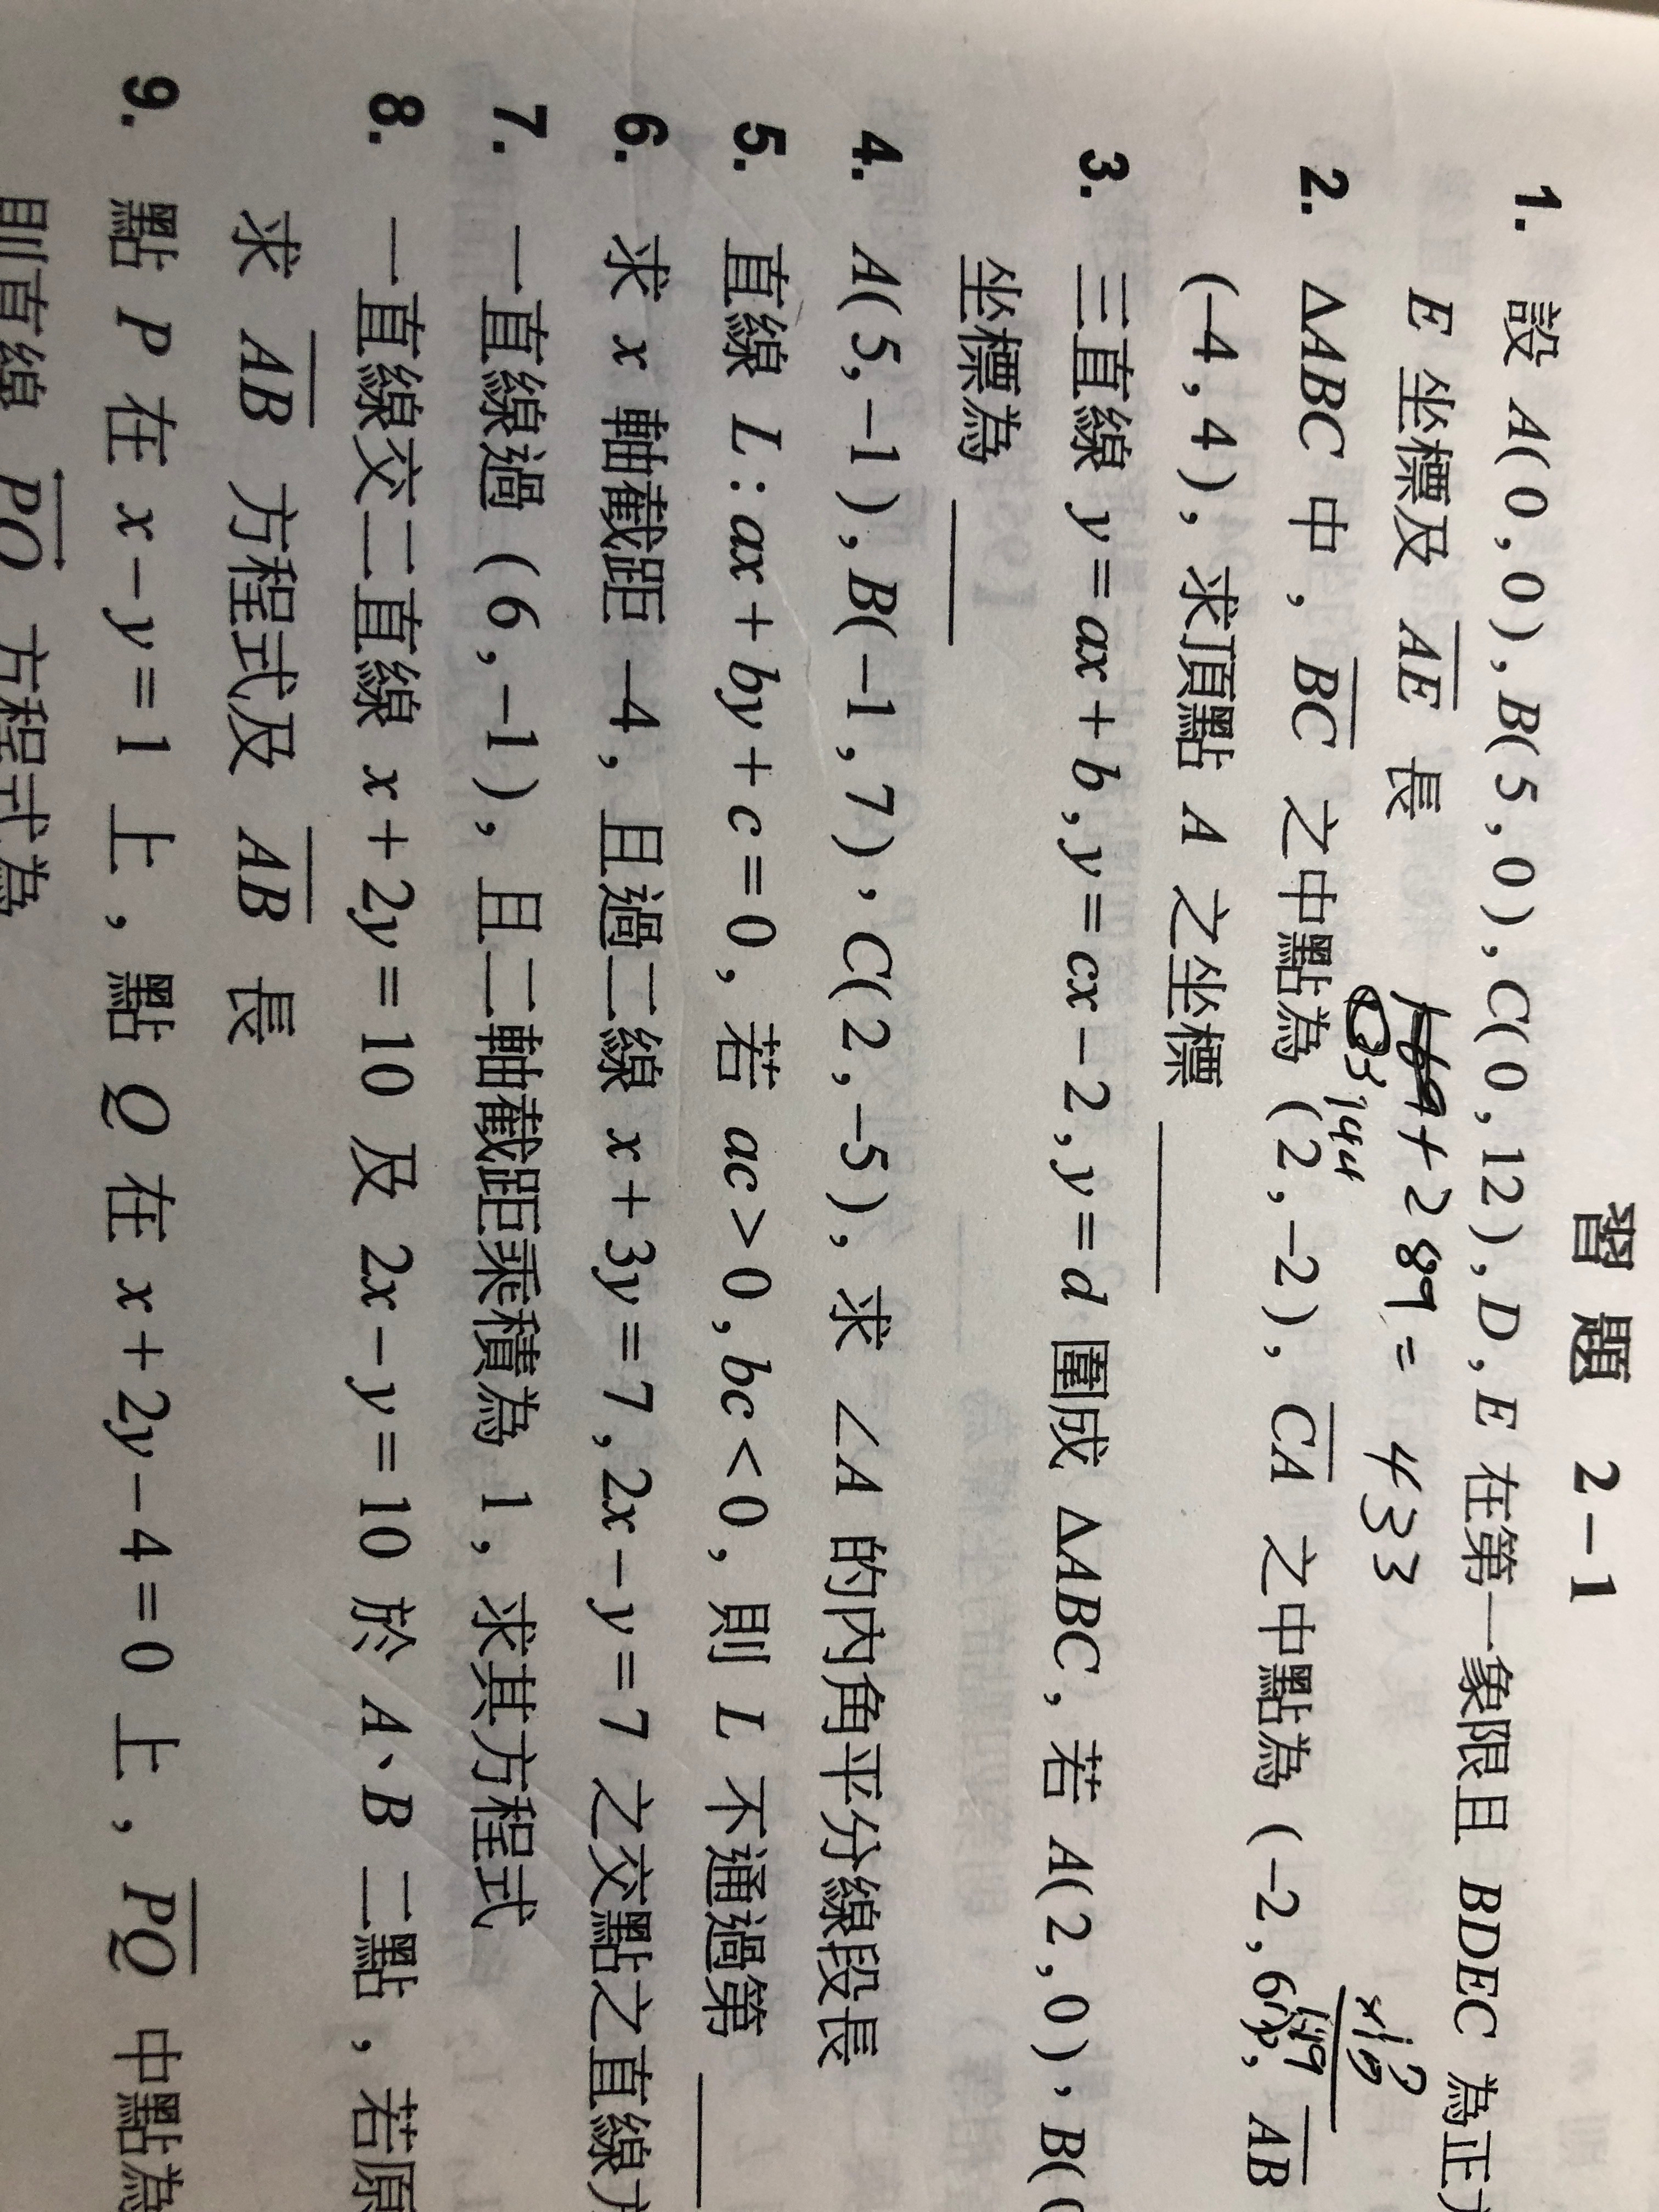 習題 2-1
1. 設 A(0,0),B(5,0),C(0,12),D,E 在第一象限且 BDEC 為正
E 坐標及 AE 長
169+289=433
144
2. △ABC 中,BC 之中點為 (2,-2),CA 之中點為 (-2,6),AB
(-4,4),求頂點 A 之坐標
3. 三直線 y=ax+b,y=cx-2,y=d 圍成 △ABC,若 A(2,0),B(
坐標為
4. A(5,-1),B(-1,7),C(2,-5),求 ∠A 的內角平分線段長
5. 直線 L:ax+by+c=0,若 ac>0,bc<0,則 L 不通過第
6. 求 x 軸截距 -4,且過二線 x+3y=7,2x-y=7 之交點之直線方
7. 一直線過 (6,-1),且二軸截距乘積為 1,求其方程式
8. 一直線交二直線 x+2y=10 及 2x-y=10 於 A、B 二點,若原
求 AB 方程式及 AB 長
9. 點 P 在 x-y=1 上,點 Q 在 x+2y-4=0 上,PQ 中點為
則直線 PQ 方程式為